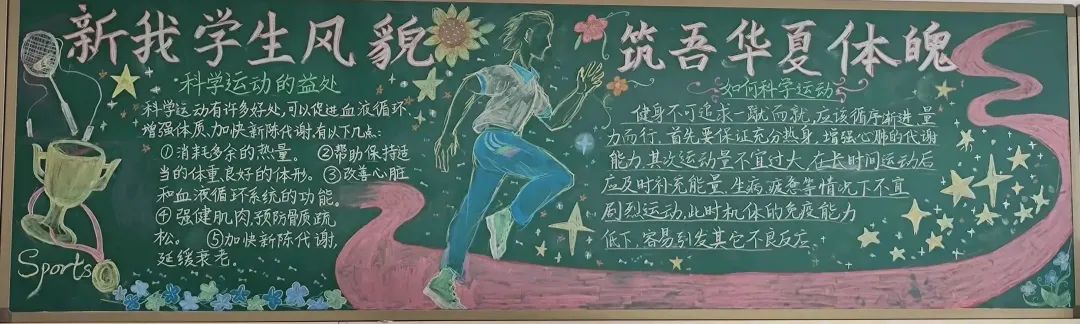 新我学生风貌
筑吾华夏体魄
科学运动的益处
科学运动有许多好处,可以促进血液循环,
增强体质,加快新陈代谢,有以下几点:
①消耗多余的热量。 ②帮助保持适
当的体重,良好的体形。③改善心脏
和血液循环系统的功能。
④强健肌肉,预防骨质疏
松。 ⑤加快新陈代谢,
延缓衰老。
Sports
如何科学运动
健身不可追求一蹴而就,应该循序渐进,量
力而行,首先要保证充分热身,增强心肺的代谢
能力,其次运动量不宜过大,在长时间运动后
应及时补充能量,生病,疲惫等情况下不宜
剧烈运动,此时机体的免疫能力
低下,容易引发其它不良反应。